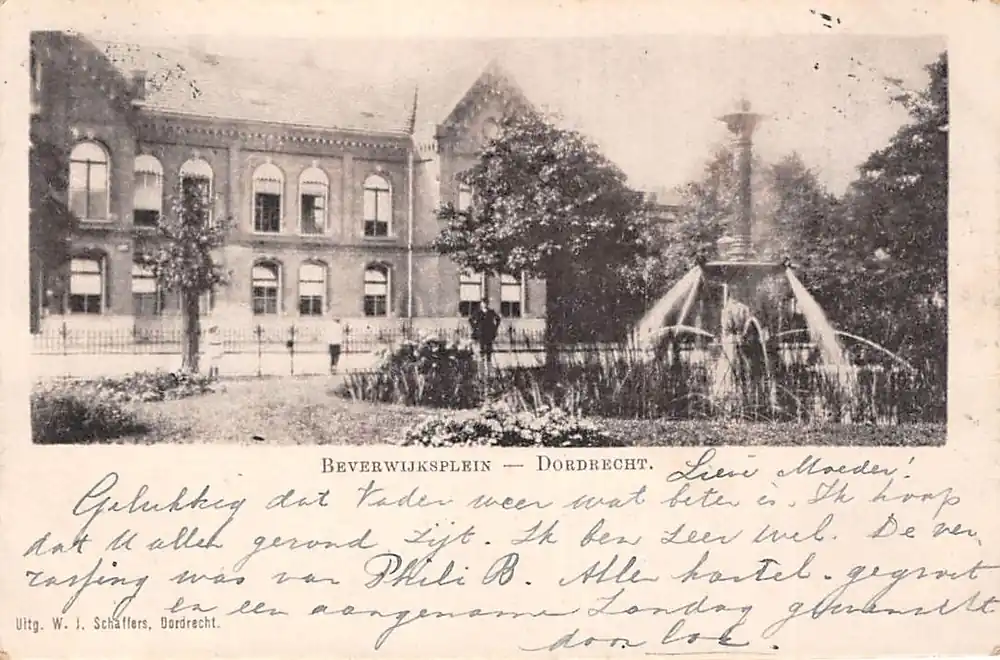 BEVERWIJKSPLEIN — DORDRECHT.
Lieve Moeder!
Gelukkig dat Vader weer wat beter is. Ik hoop
dat U allen gezond zijt. Ik ben zeer wel. De ver,
rassing was van Phili B. Allen hartel. gegroet
en een aangename Zondag gewenscht
door
Uitg. W. J. Schaffers, Dordrecht.